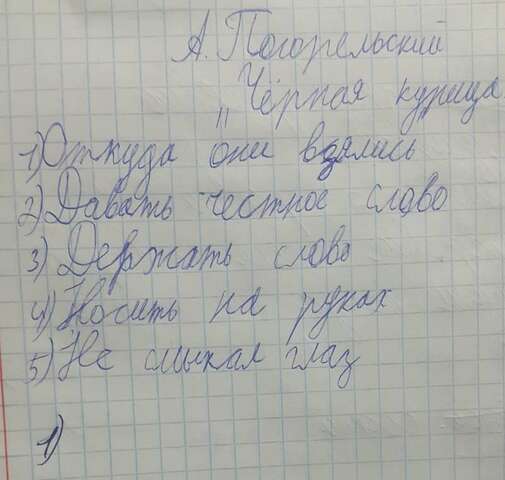 А. Погорельский
„Чёрная курица
1) Откуда они взялись
2) Давать честное слово
3) Держать слово
4) Носить на руках
5) Не смыкал глаз
1)